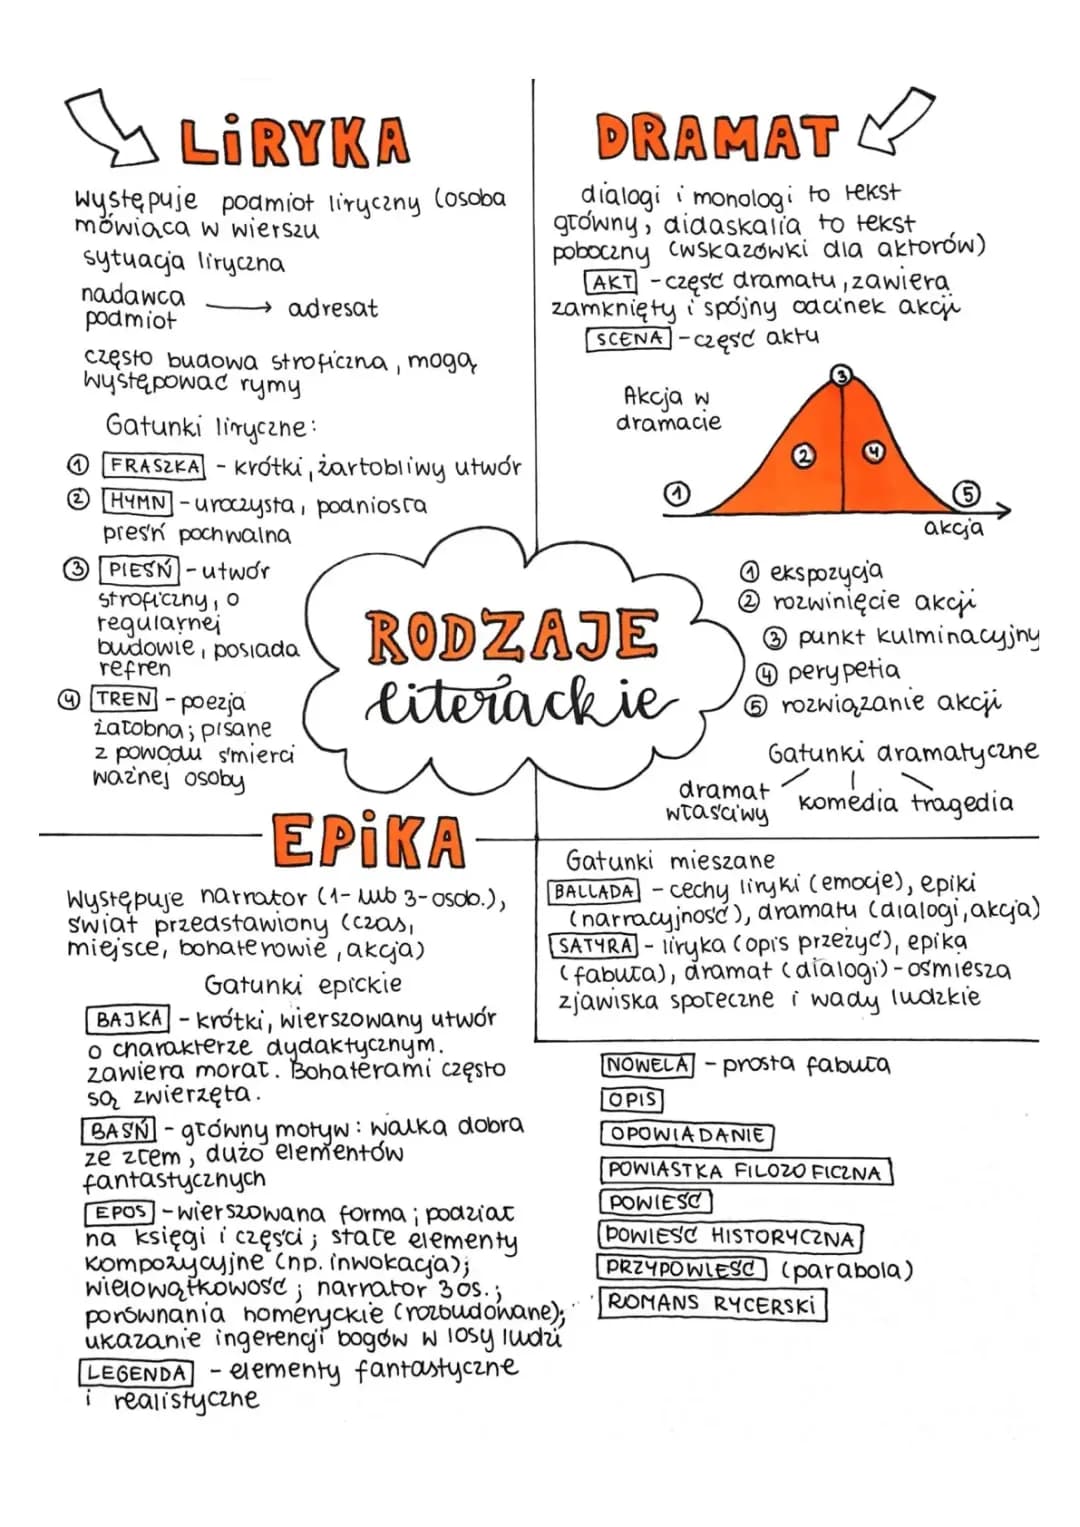 LiRYKA
Występuje podmiot liryczny (osoba
mówiąca w wierszu
sytuacja liryczna
nadawca
podmiot
adresat
często budowa stroficzna, mogą
występować rymy
Gatunki liryczne:
1 FRASZKA - krótki, żartobliwy utwór
2 HYMN - uroczysta, podniosła
pieśń pochwalna
3 PIEŚŃ - utwór
stroficzny, o
regularnej
budowie, posiada
refren
4 TREN - poezja
żałobna; pisane
z powodu śmierci
ważnej osoby
DRAMAT
dialogi i monologi to tekst
główny, didaskalia to tekst
poboczny (wskazówki dla aktorów)
AKT - część dramatu, zawiera
zamknięty i spójny odcinek akcji
SCENA - część aktu
Akcja w
dramacie
1
2
3
4
5
akcja
1 ekspozycja
2 rozwinięcie akcji
3 punkt kulminacyjny
4 perypetia
5 rozwiązanie akcji
Gatunki dramatyczne
dramat
właściwy
komedia tragedia
RODZAJE
literackie
EPiKA
Występuje narrator (1- lub 3-osob.),
świat przedstawiony (czas,
miejsce, bohaterowie, akcja)
Gatunki epickie
BAJKA - krótki, wierszowany utwór
o charakterze dydaktycznym.
zawiera morał. Bohaterami często
są zwierzęta.
BAŚŃ - główny motyw: walka dobra
ze złem, dużo elementów
fantastycznych
EPOS - wierszowana forma; podział
na księgi i części; stałe elementy
kompozycyjne (np. inwokacja);
wielowątkowość; narrator 3os.;
porównania homeryckie (rozbudowane);
ukazanie ingerencji bogów w losy ludzi
LEGENDA - elementy fantastyczne
i realistyczne
Gatunki mieszane
BALLADA - cechy liryki (emocje), epiki
(narracyjność), dramatu (dialogi, akcja)
SATYRA - liryka (opis przeżyć), epika
(fabuła), dramat (dialogi) - ośmiesza
zjawiska społeczne i wady ludzkie
NOWELA - prosta fabuła
OPIS
OPOWIADANIE
POWIASTKA FILOZOFICZNA
POWIEŚĆ
POWIEŚĆ HISTORYCZNA
PRZYPOWIEŚĆ (parabola)
ROMANS RYCERSKI